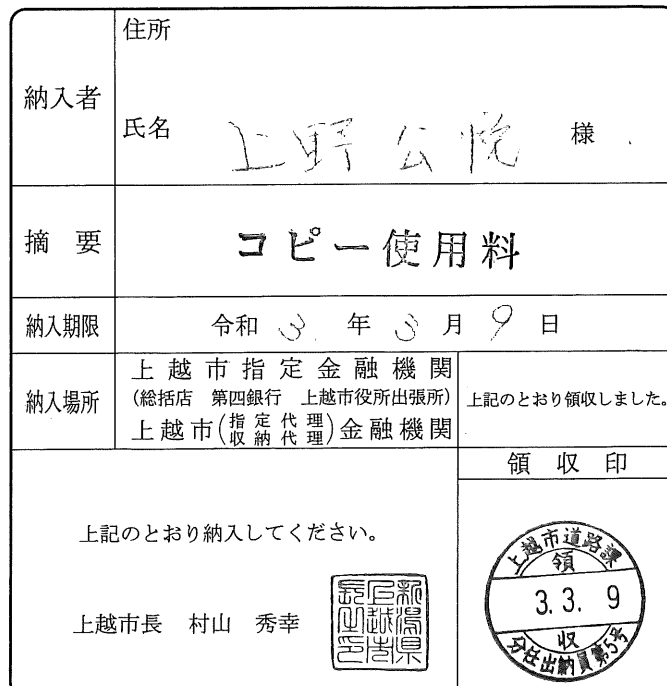 納入者
住所
氏名 上野 公悦 様
摘 要
コピー使用料
納入期限
令和 3 年 3 月 9 日
納入場所
上越市指定金融機関
(総括店 第四銀行 上越市役所出張所)
上越市(指定代理 収納代理)金融機関
上記のとおり領収しました。
領 収 印
上記のとおり納入してください。
上越市長 村山 秀幸
新潟県
上越市
長之印
上越市道路課
領
3. 3. 9
収
分任出納員第5号